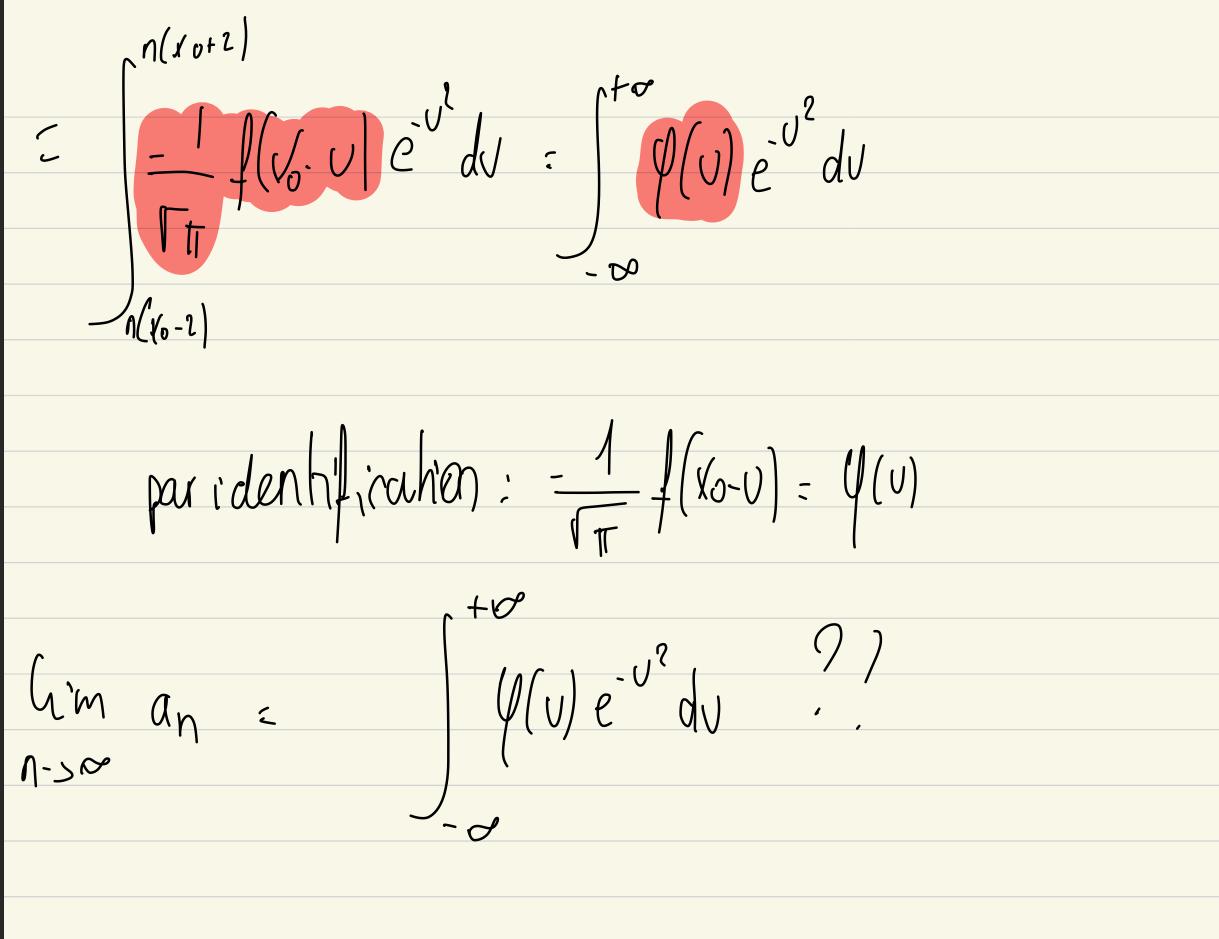 = ∫_{n(x₀-2)}^{n(x₀+2)} -1/√π f(x₀-u) e^{-u²} du = ∫_{-∞}^{+∞} φ(u) e^{-u²} du
par identification : -1/√π f(x₀-u) = φ(u)
lim_{n->∞} aₙ = ∫_{-∞}^{+∞} φ(u) e^{-u²} du ??